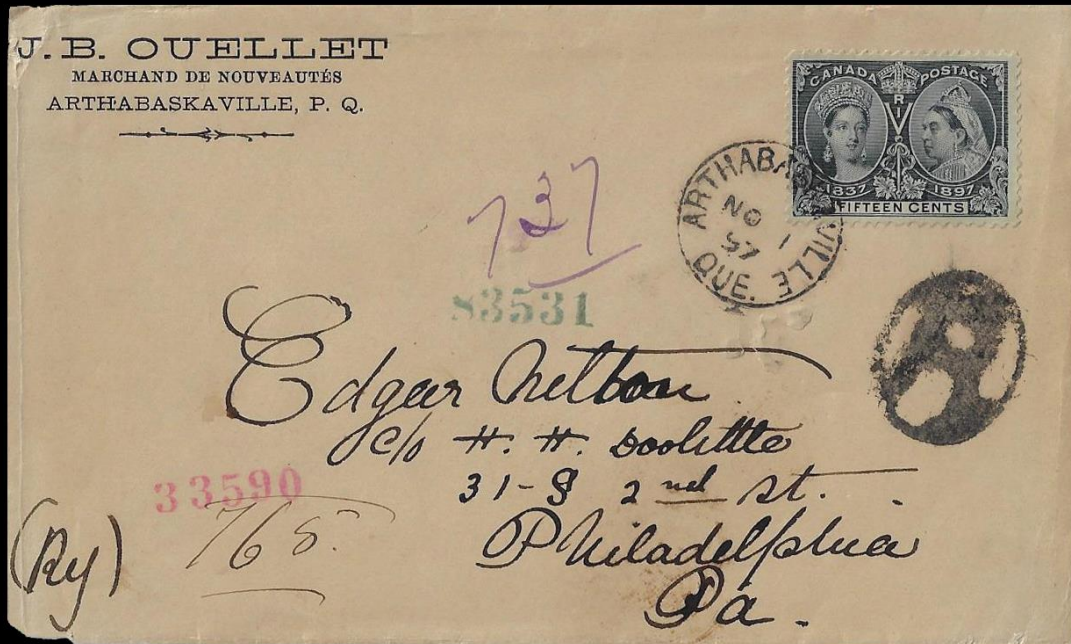 J. B. OUELLET
MARCHAND DE NOUVEAUTÉS
ARTHABASKAVILLE, P. Q.
CANADA POSTAGE
V R I
1837 1897
FIFTEEN CENTS
ARTHABA VILLE
NO 1
97
QUE.
737
83531
Edgar Nelton
c/o H. H. Doolittle
31-S 2nd st.
Philadelphia
Pa.
33590
768.